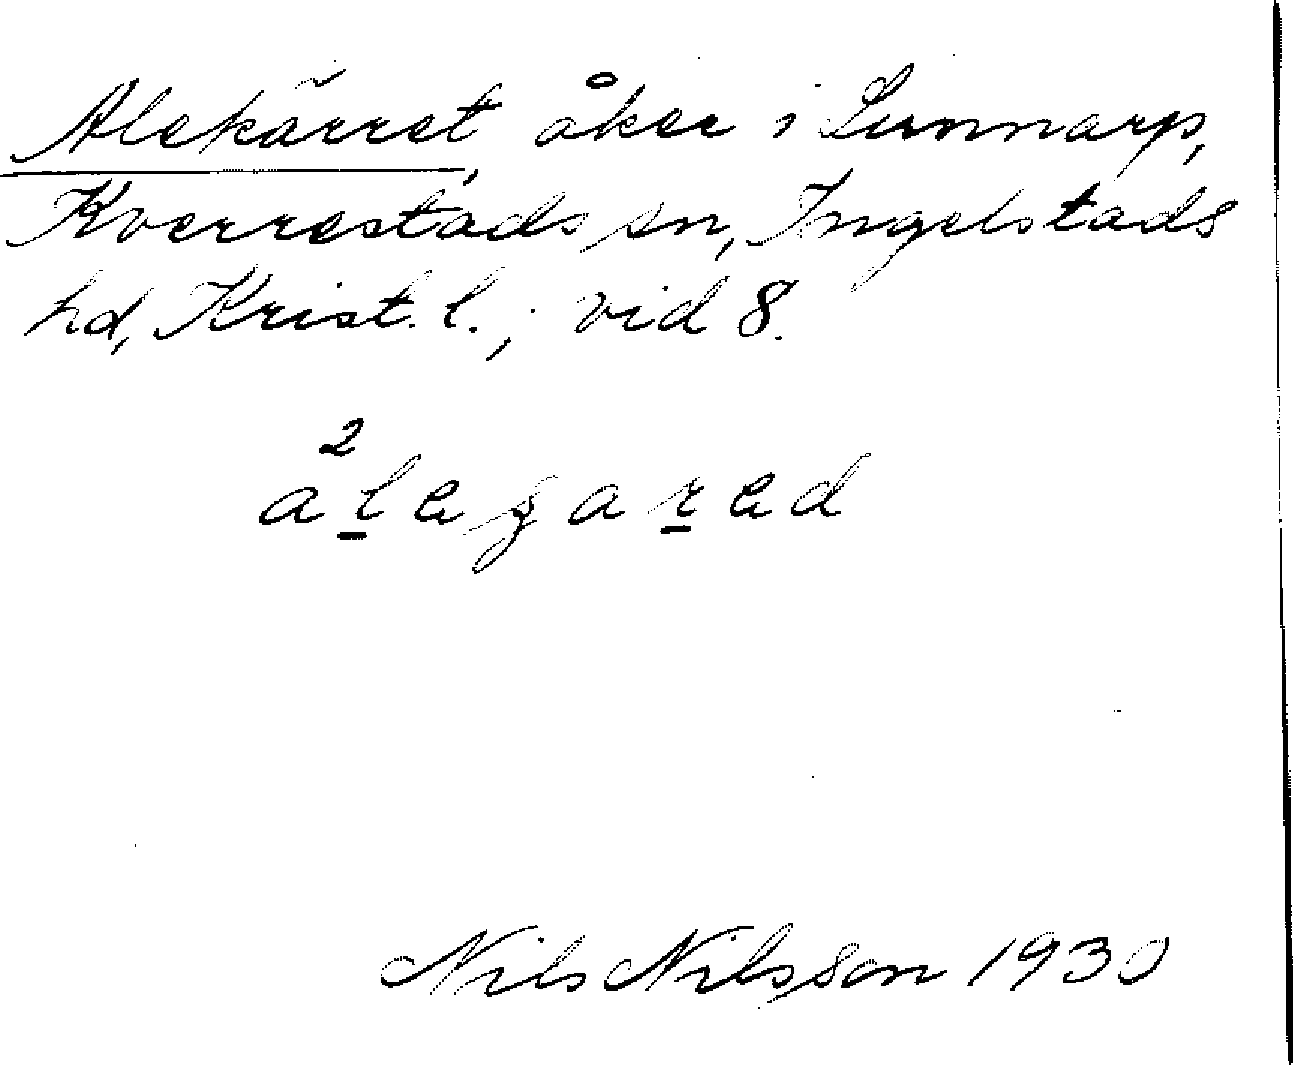 Alekärret, åker i Lunnarp,
Kverrestads sn, Ingelstads
hd, Krist. l., vid 8.
a²legared
Nils Nilsson 1930